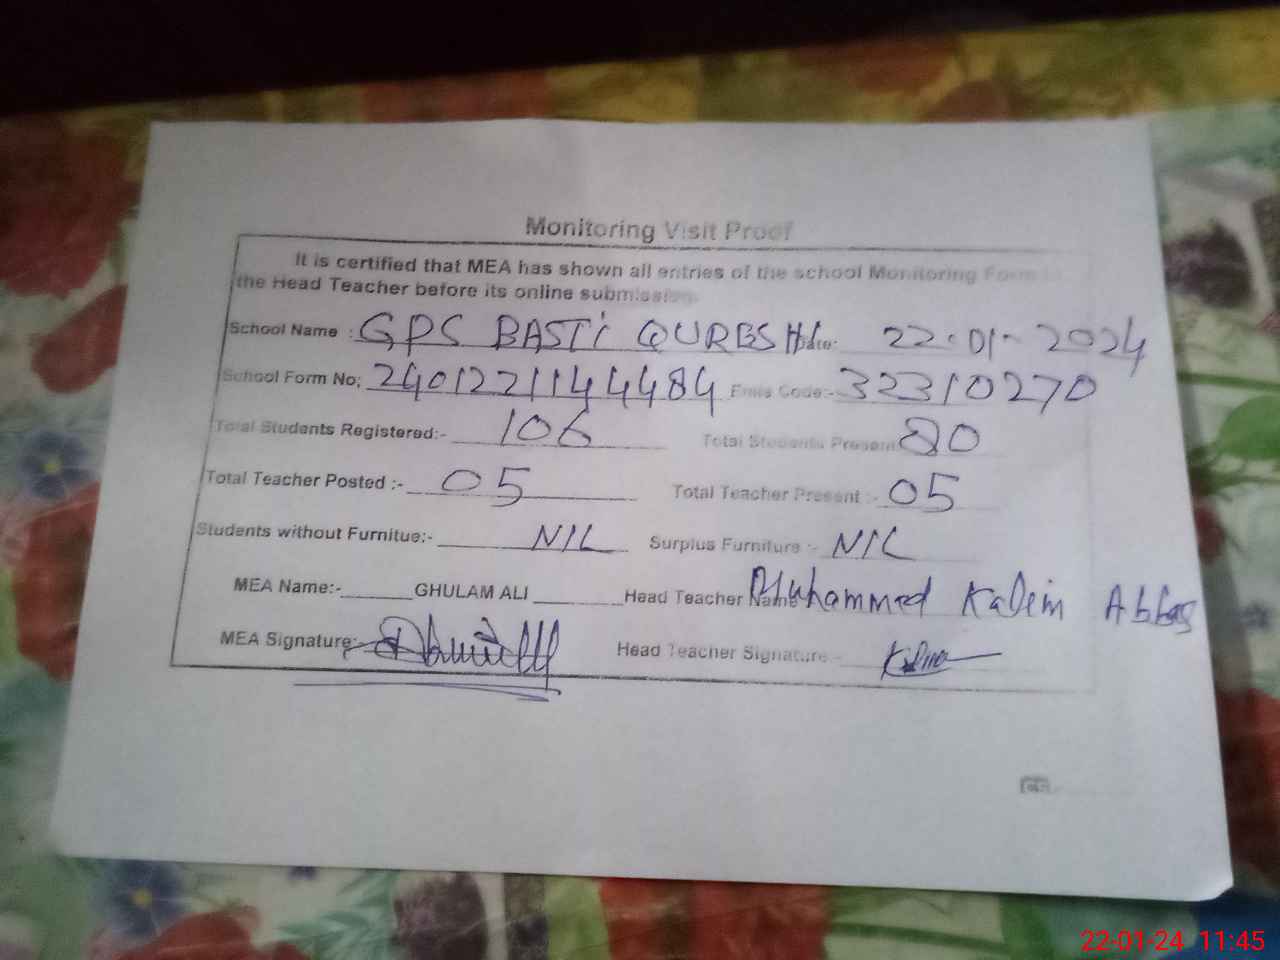 Monitoring Visit Proof
It is certified that MEA has shown all entries of the school Monitoring Form to
the Head Teacher before its online submission.
School Name : GPS BASTI QURESHI Date: 22-01-2024
School Form No; 2401221144484 Emis Code:- 32310270
Total Students Registered:- 106 Total Students Present 80
Total Teacher Posted :- 05 Total Teacher Present :- 05
Students without Furnitue:- NIL Surplus Furniture :- NIL
MEA Name:- GHULAM ALI Head Teacher Name Muhammed Kaleim Abbas
MEA Signature:- Head Teacher Signature:-
22-01-24 11:45